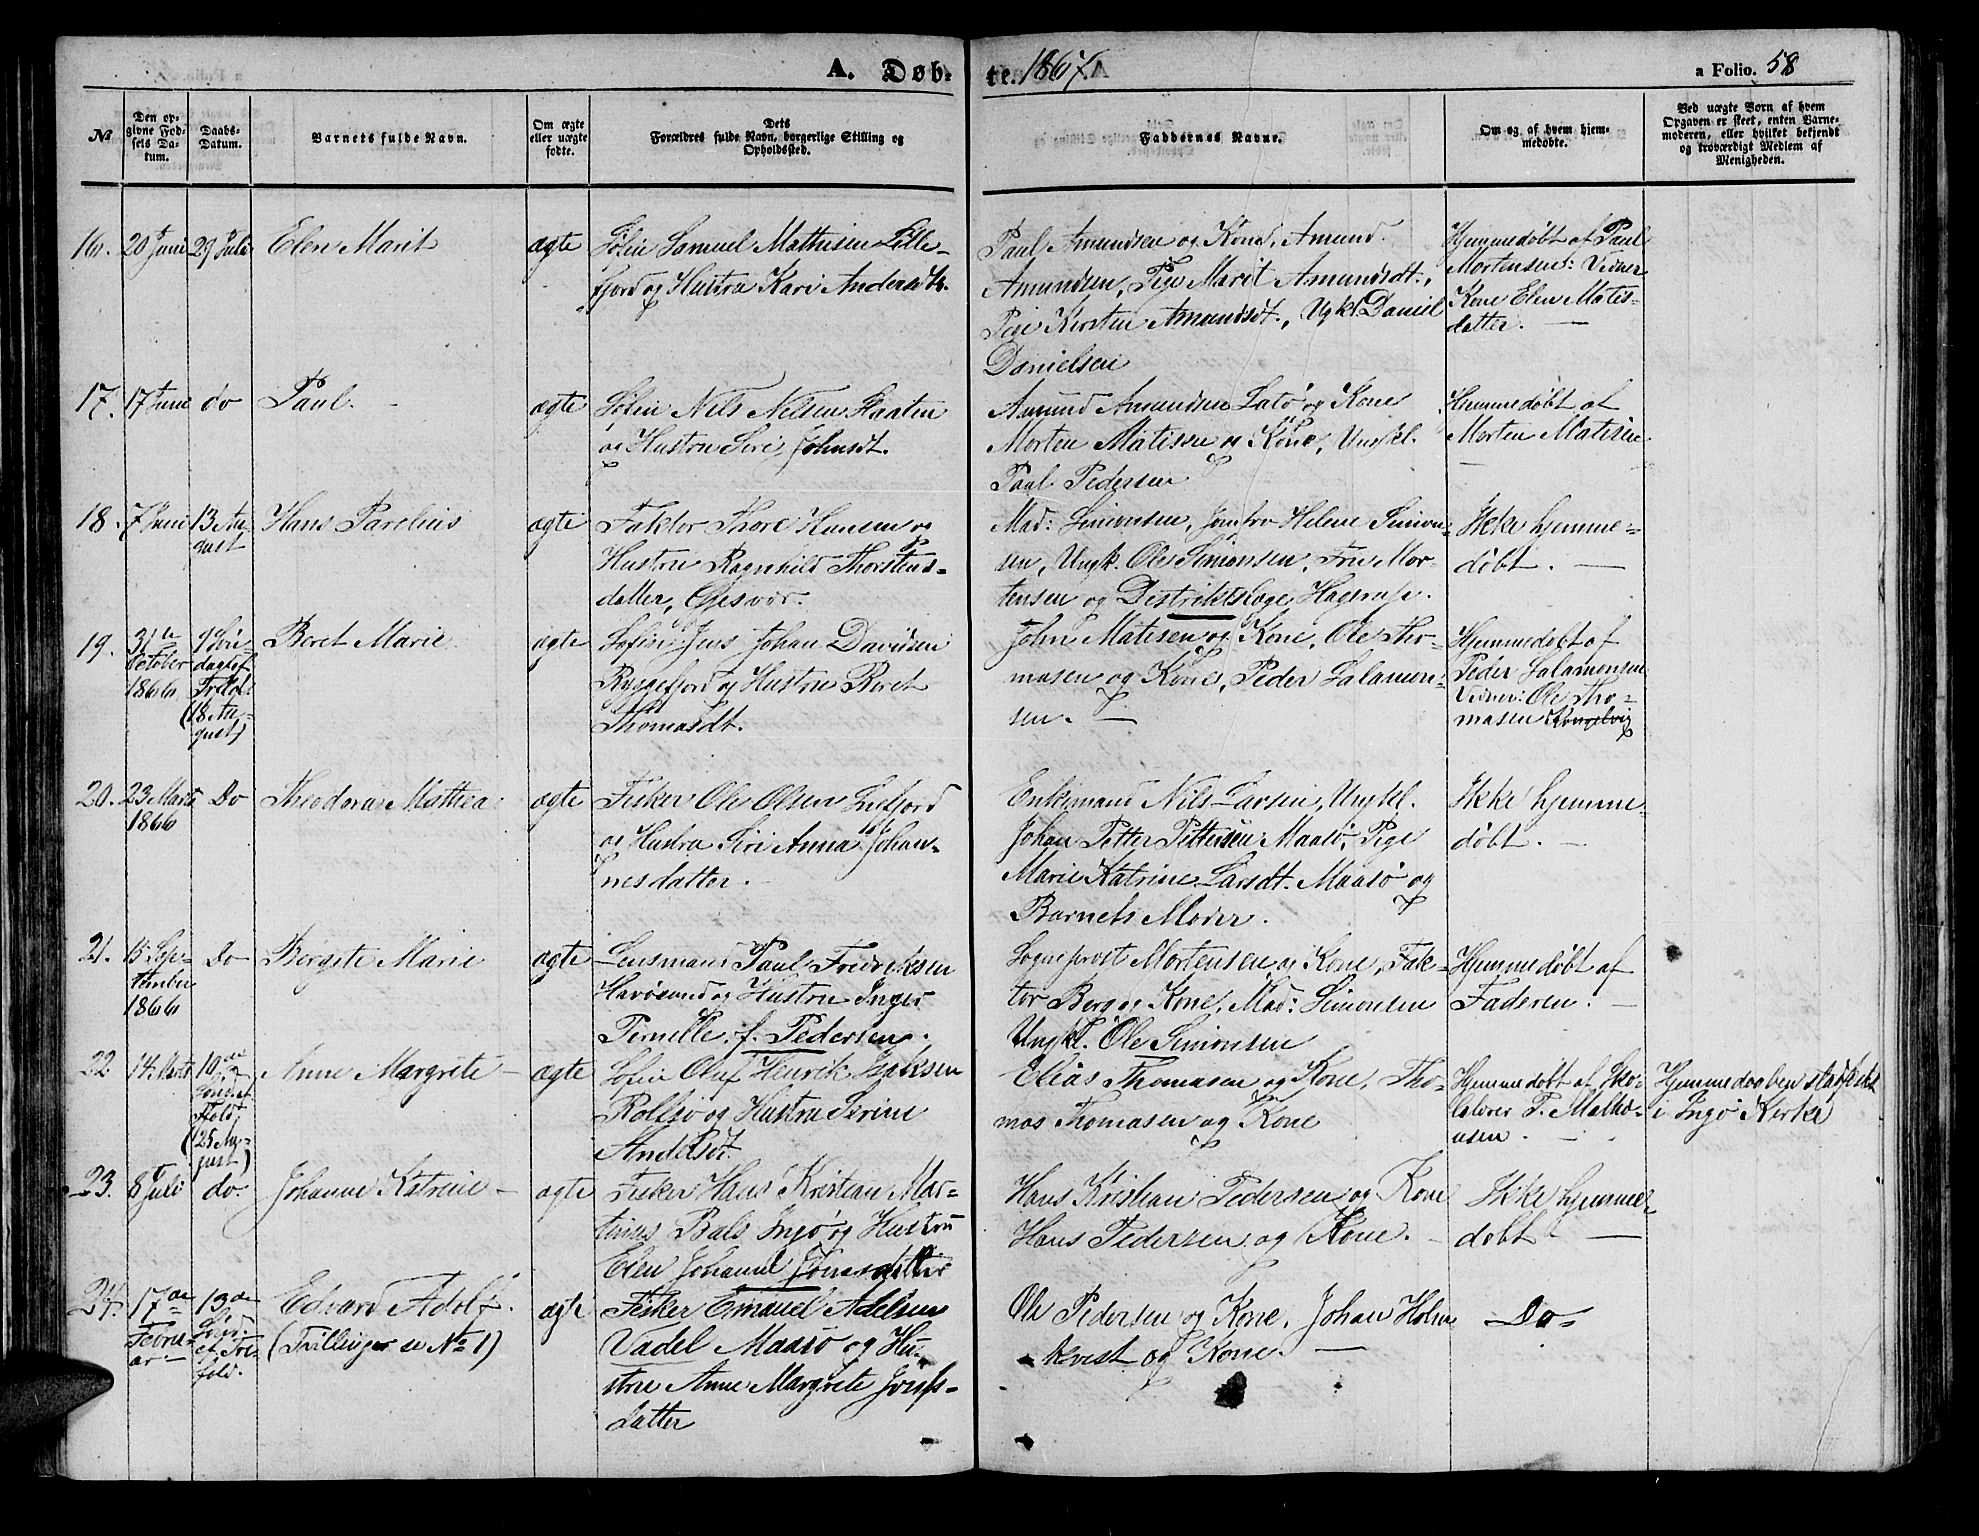 A. Døb-
te. 1867.
a Folio. 58
No
Den op-
givne Fød-
sels Da-
tum.
Daabs-
Datum.
Barnets fulde Navn.
Om ægte
eller uægte
fødte.
Dets
Forældres fulde Navn, borgerlige Stilling og
Opholdssted.
Faddernes Navne.
Om og af hvem hjem-
medøbte.
Ved uægte Børn af hvem
Opgaven er skeet, enten Barne-
moderen, eller hvilket bekjendt
og troværdigt Medlem af
Menigheden.
16. 20 Juni 29 Juli Elen Marit ægte
Søfin Samuel Mathisen Lille-
fjord og Hustru Kari Andersdtr.
Paul Amundsen og Kone, Amund
Amundsen, Pige Marit Amundsdt.,
Pige Kirsten Amundsdt., Ugkl Daniel
Danielsen
Hjemmedøbt af Paul
Mortensen: Vidner
Kone Elen Matis-
datter. —
17. 17 Juni do Paul. — ægte
Søfin Nils Nilsen Slaaten
og Hustru Siri Johnsdt.
Amund Amundsen Latø og Kone
Morten Matisen og Kone, Ungkl.
Paul Pedersen
Hjemmedøbt af
Morten Matisen.
—
18. 7 Juni 13 Au-
gust
Hans Parelius ægte
Faktor Thore Hansen og
Hustru Ragnhild Thorstens-
datter, Gjesvær.
Mad: Simonsen, Jomfru Helene Simon-
sen, Ungk. Ole Simonsen, Fru Mor-
tensen og Distriktslæge Hagerup.
Ikke hjemme-
døbt. —
19. 31te
October
1866
9 Søn-
dag ef.
Trefol:
(18 Au-
gust)
Beret Marie ægte
Søfin Jens Johan Davidsen
Ryggefjord og Hustru Beret
Thomasdt.
John Matisen og Kone, Ole Tho-
masen og Kone, Peder Salamon-
sen. —
Hjemmedøbt af
Peder Salamonsen
Vidner: Ole Tho-
masen Kongelvig
20. 23 Marts
1866
Do Theodora Mathea ægte
Fisker Ole Olsen Lilefjord
og Hustru Siri Anna Johan-
nesdatter.
Enkemand Nils Larsen, Ungkl.
Johan Petter Pettersen Maasø, Pige
Marie Katrine Larsdt. Maasø og
Barnets Moder.
Ikke hjemme-
døbt. —
21. 15: Sep-
tember
1866
Do Bergite Marie ægte
Lensmand Paul Fredriksen
Havøsund og Hustru Inger
Pernille f. Pedersen.
Sogneprest Mortensen og Kone, Fak-
tor Berg og Kone, Mad: Simonsen
Ungkl. Ole Simonsen
Hjemmedøbt af
Faderen. —
22 14. Marts 10de
Sønd. ef.
Trefold,
(25 Au-
gust)
Anne Margrete — ægte
Søfin Oluf Henrik Isaksen
Rolfsø og Hustru Serine
Andersdt.
Elias Thomasen og Kone, Tho-
mas Thomasen og Kone
Hjemmedøbt af Sko-
lelærer P. Mathi-
asen. —
Hjemmedaaben stadfæstet
i Ingø Kirke
23. 8 Juli do. Johanne Katrine — ægte
Fisker Hans Kristian Mar-
tinus Bals Ingø og Hustru
Elen Johanne Jonasdatter
Hans Kristian Pedersen og Kone
Hans Pedersen og Kone. —
Ikke hjemme-
døbt —
24. 17de
Febru-
ar —
13de
Sønd.
ef. Tre-
fold.
Edvard Adolf.
(Trillinger se No 1)
ægte
Fisker Emanuel Adelsen
Vadel Maasø og Hu-
stru Anne Margrete Josefs-
datter
Ole Pedersen og Kone, Johan Holm-
kvist og Kone. —
— Do —